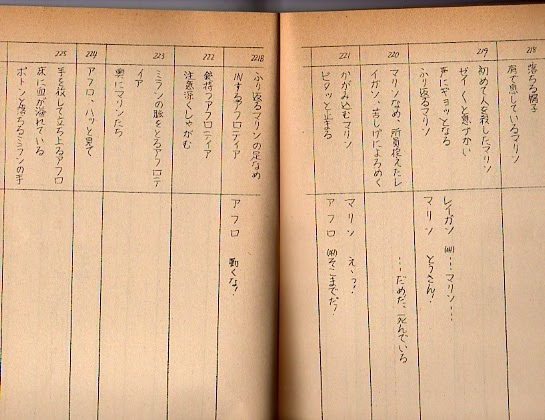 218
落ちる扇子
肩で息しているマリン
219
初めて人を殺したマリン
ゼイ〱と息づかい
声にギョッとなる
ふり返るマリン
レイガン (off)…マリン…
マリン とうさん!
220
マリンなめ、所員控えたレ
イガン、苦しげによろめく
…だめだ、死んでいる
221
かがみ込むマリン
ピタッと止まる
マリン えっ?
アフロ (off)そこまでだ!
221B
ふり返るマリンの足なめ
INするアフロディア
アフロ 動くな!
222
銃持つアフロディア
注意深くしゃがむ
223
ミランの脈をとるアフロディ
イア
奥にマリンたち
224
アフロ、ハッと見て
225
手を放して立ち上るアフロ
床に血が流れている
ポトンと落ちるミランの手